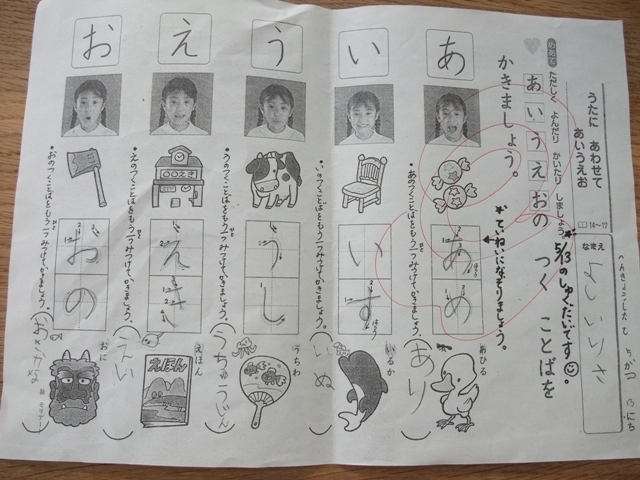 うたに あわせて
あいうえお
14~17
なまえ
めあて
ただしく よんだり かいたり しましょう
5/13のしゅくだいです。
あいうえおの つく ことばを
かきましょう。
*ていねいになぞりましょう。
あ
あめ
あのつくことばをもう一つみつけてかきましょう。
あひる
(あり)
い
いす
いのつくことばをもう一つみつけてかきましょう。
いるか
(いぬ)
う
うし
うのつくことばをもう一つみつけてかきましょう。
うちわ
(うちゅうじん)
え
〇〇えき
えき
えのつくことばをもう一つみつけてかきましょう。
えほん
えほん
お
おの
おのつくことばをもう一つみつけてかきましょう。
おに
(おさかな)